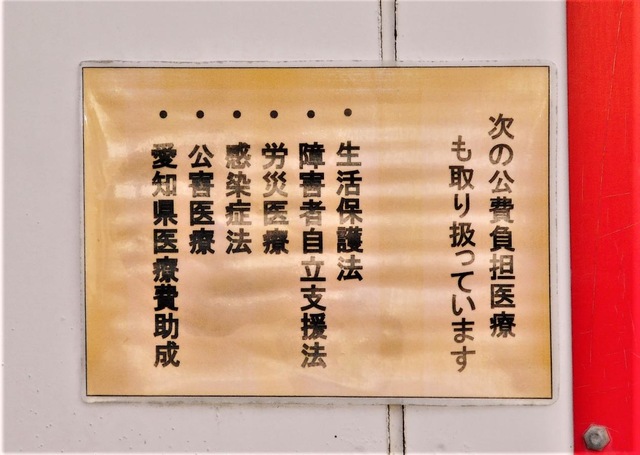 次の公費負担医療
も取り扱っています
・生活保護法
・障害者自立支援法
・労災医療
・感染症法
・公害医療
・愛知県医療費助成